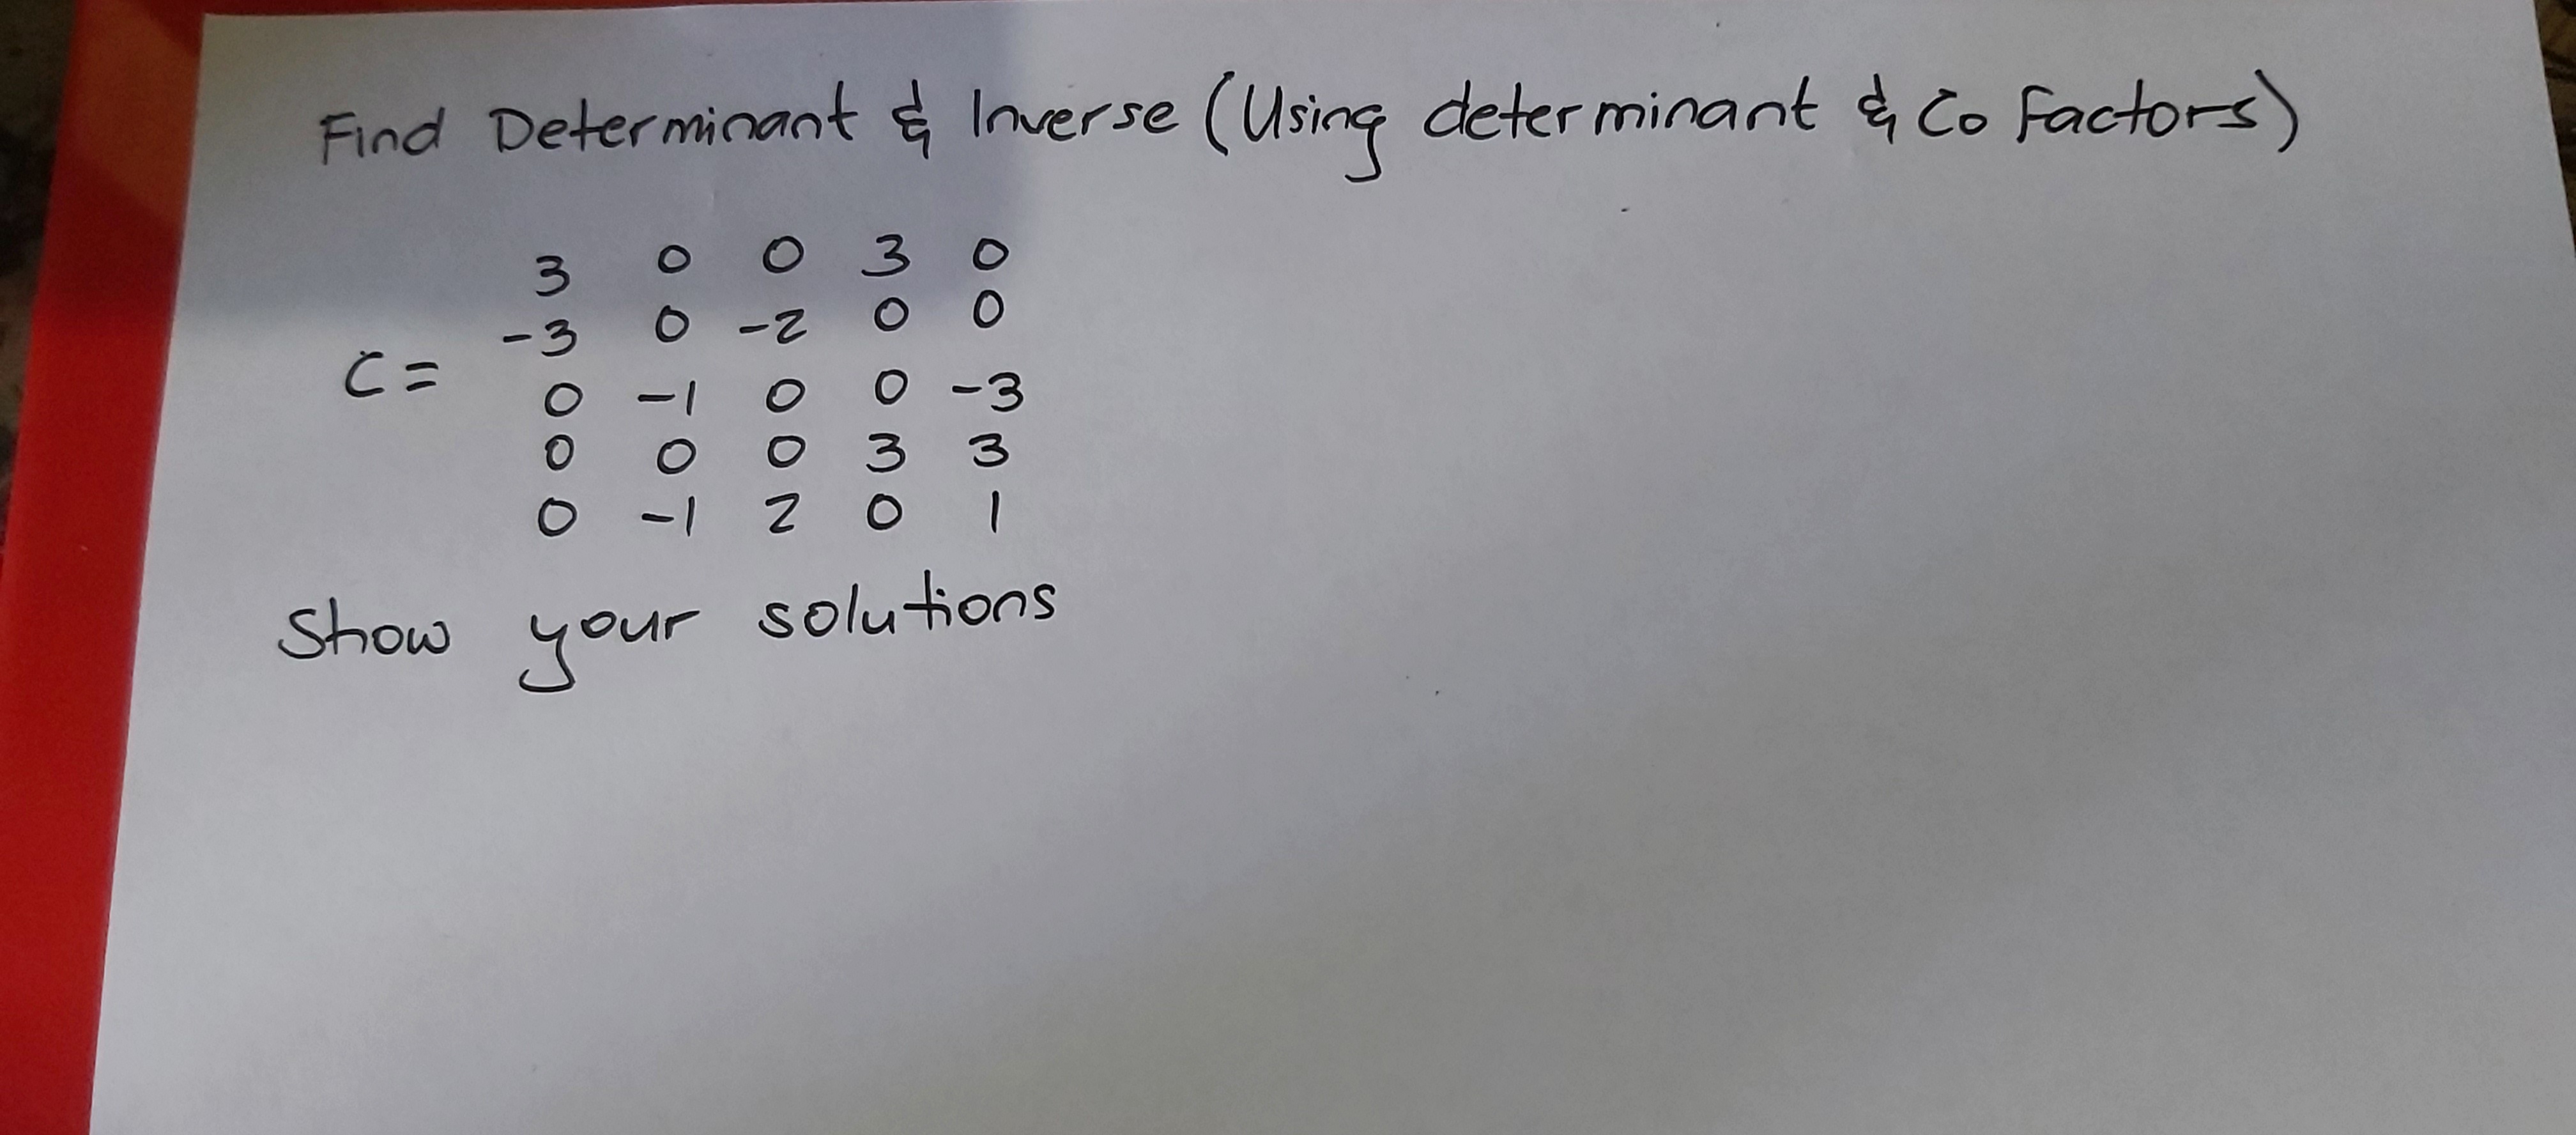 Find Determinant & Inverse (Using determinant & Co Factors)
3 0 0 3 0
-3 0 -2 0 0
C =
0 -1 0 0 -3
0 0 0 3 3
0 -1 2 0 1
Show your solutions